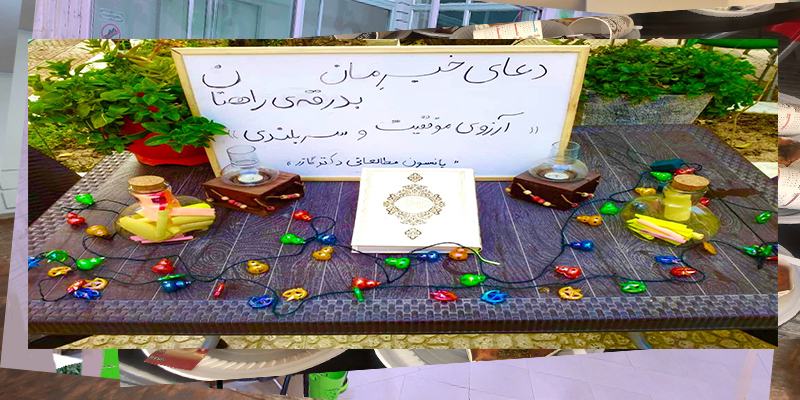 دعای خیرمان
بدرقه‌ی راهتان
(( آرزوی موفقیت و سربلندی ))
"پانسیون مطالعاتی دکتر